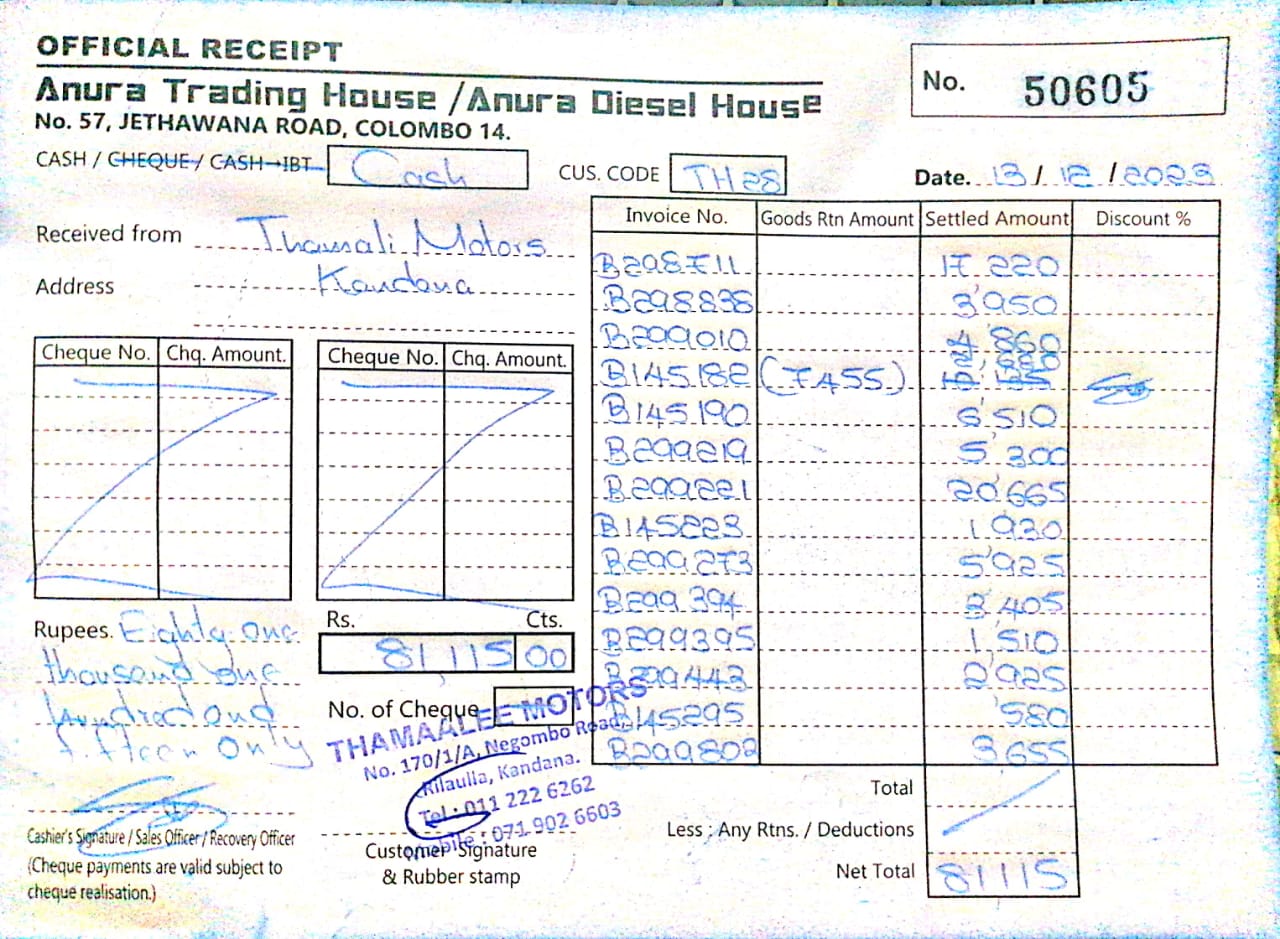 OFFICIAL RECEIPT
Anura Trading House / Anura Diesel House
No. 57, JETHAWANA ROAD, COLOMBO 14.
No. 50605
CASH / CHEQUE / CASH→IBT Cash
CUS. CODE TH28
Date. 13 / 12 / 2023
Received from Thamali Motors
Address Kandana
Cheque No. Chq. Amount.
Cheque No. Chq. Amount.
Invoice No. Goods Rtn Amount Settled Amount Discount %
B298711 17 220
B298838 3'950
B299010 4'860
2'680
B145182 (7455) 10,135
B145190 6'510
B299219 5'300
B299221 20'665
B145223 1'930
B299273 5'925
B299394 3'405
B299395 1,510
B299443 2'925
B145295 '580
B299802 3'655
Total
Less : Any Rtns. / Deductions
Net Total 81115
Rupees. Eighty one
thousand one
hundred and
fifteen only
Rs. Cts.
81,115 00
No. of Cheque
THAMAALEE MOTORS
No. 170/1/A, Negombo Road,
Rilaulla, Kandana.
Tel : 011 222 6262
Mobile : 071 902 6603
Cashier's Signature / Sales Officer / Recovery Officer
(Cheque payments are valid subject to
cheque realisation.)
Customer Signature
& Rubber stamp